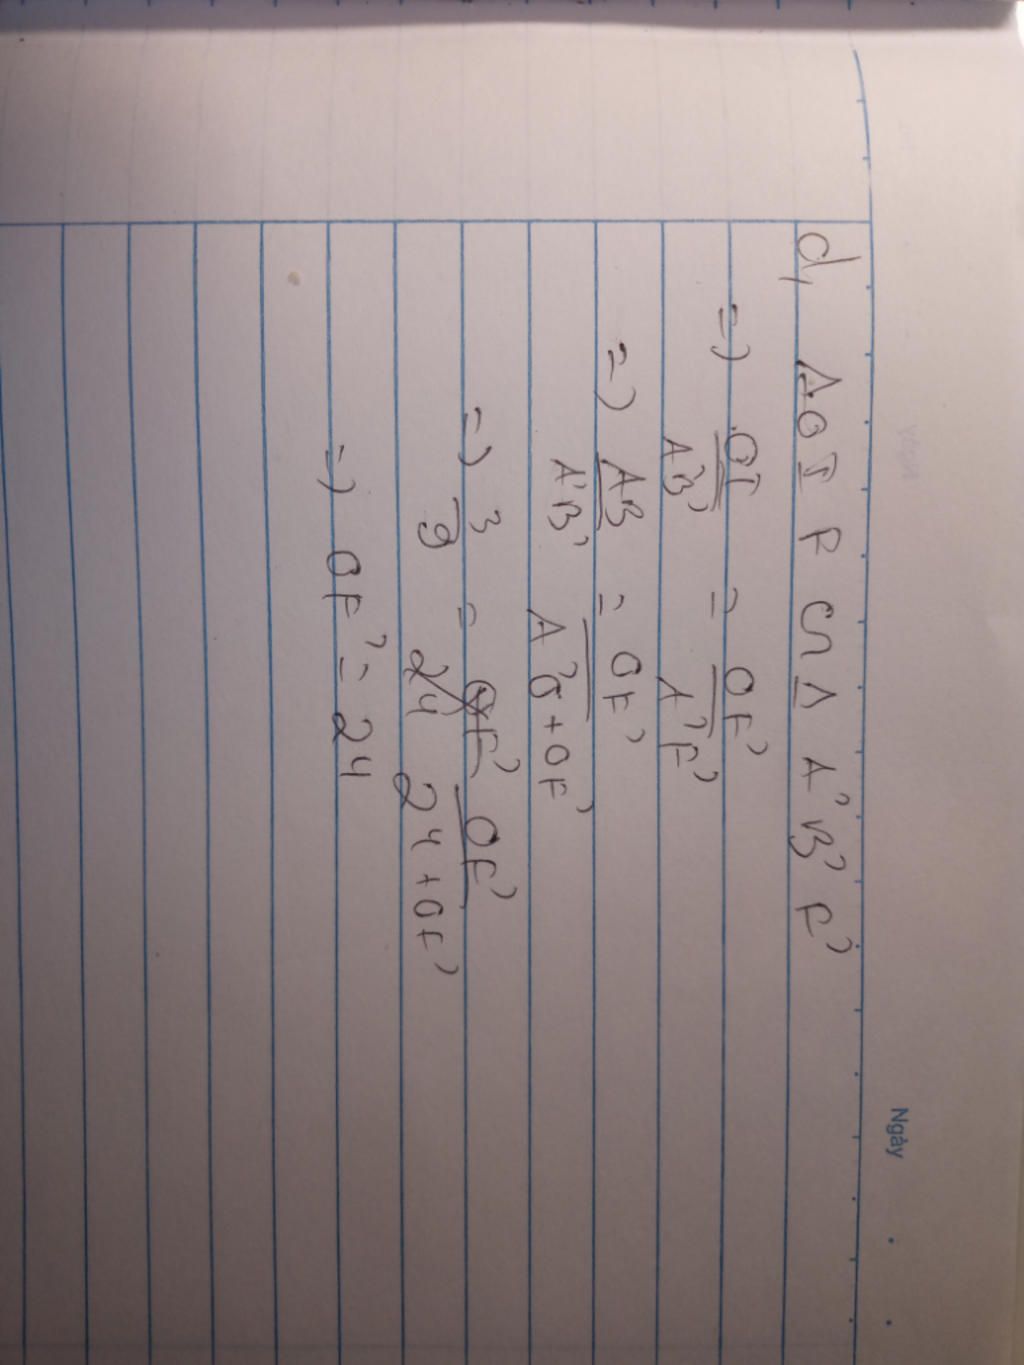 Ngày
d, ΔOIF ∽ Δ A'B'F'
=> OI/A'B' = OF'/A'F'
=> AB/A'B' = OF'/A'O+OF'
=> 3/9 = OF'/24 OF'/24+OF'
=> OF' = 24